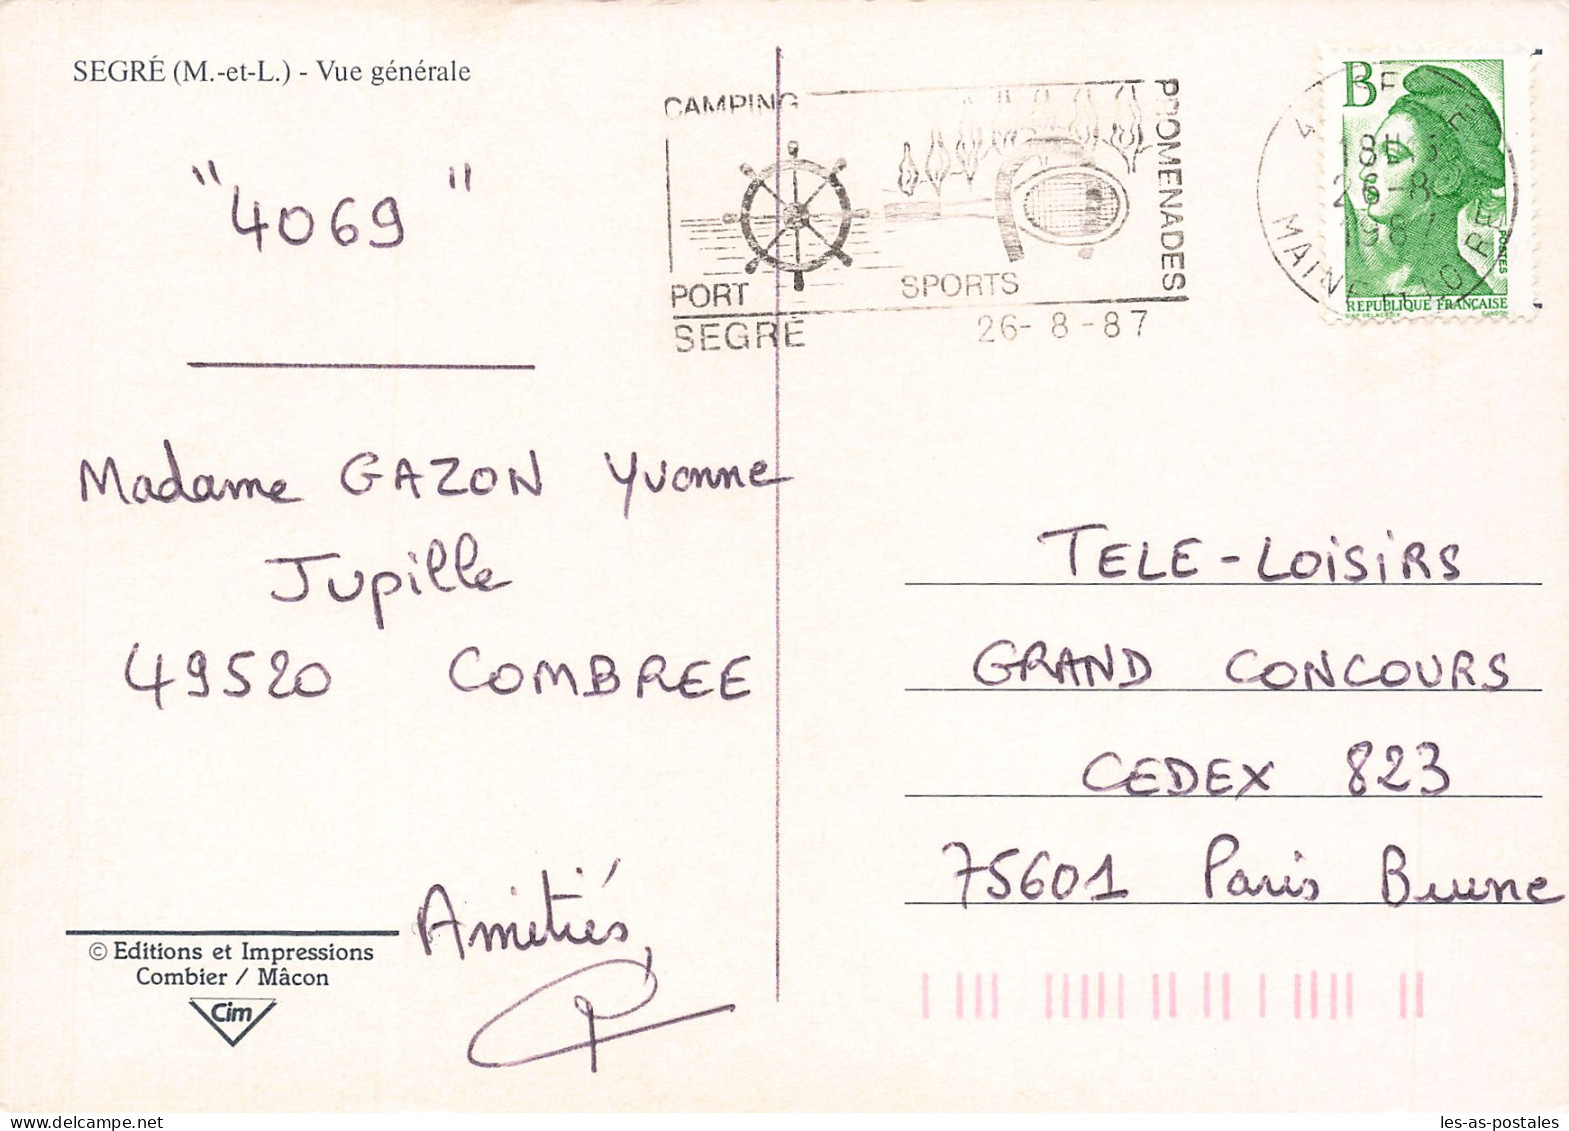 SEGRÉ (M.-et-L.) - Vue générale
"4069"
Madame GAZON Yvonne
Jupille
49520 COMBREE
Amitiés,
© Editions et Impressions
Combier / Mâcon
Cim
CAMPING
PROMENADES
PORT
SPORTS
SEGRÉ
26-8-87
B
POSTES
REPUBLIQUE FRANÇAISE
26-8
MAINE
TELE-LOISIRS
GRAND CONCOURS
CEDEX 823
75601 Paris Brune
les-as-postales